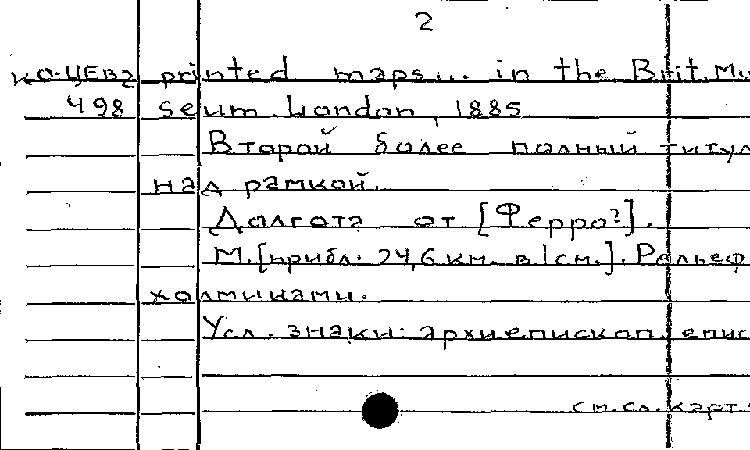 2
КО-ЦЕВ2 printed maps... in the Brit. Mu
498 seum. London, 1885
Второй более полный титул
над рамкой.
Долгота от [Ферро?].
М.[прибл. 24,6 км. в 1 см.]. Рельеф
холмиками.
Усл. знаки: архиепископ, епис
см. сл. карт